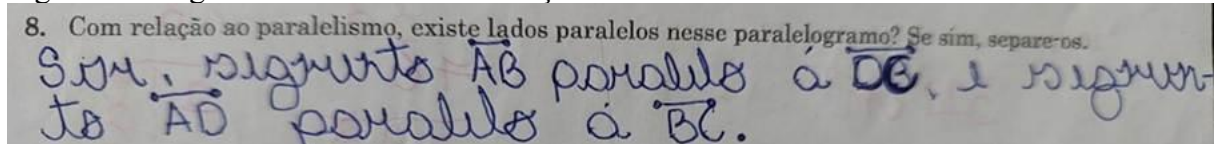 8. Com relação ao paralelismo, existe lados paralelos nesse paralelogramo? Se sim, separe-os.
Sim, segmento AB paralelo á DC, e segmen-
to AD paralelo á BC.